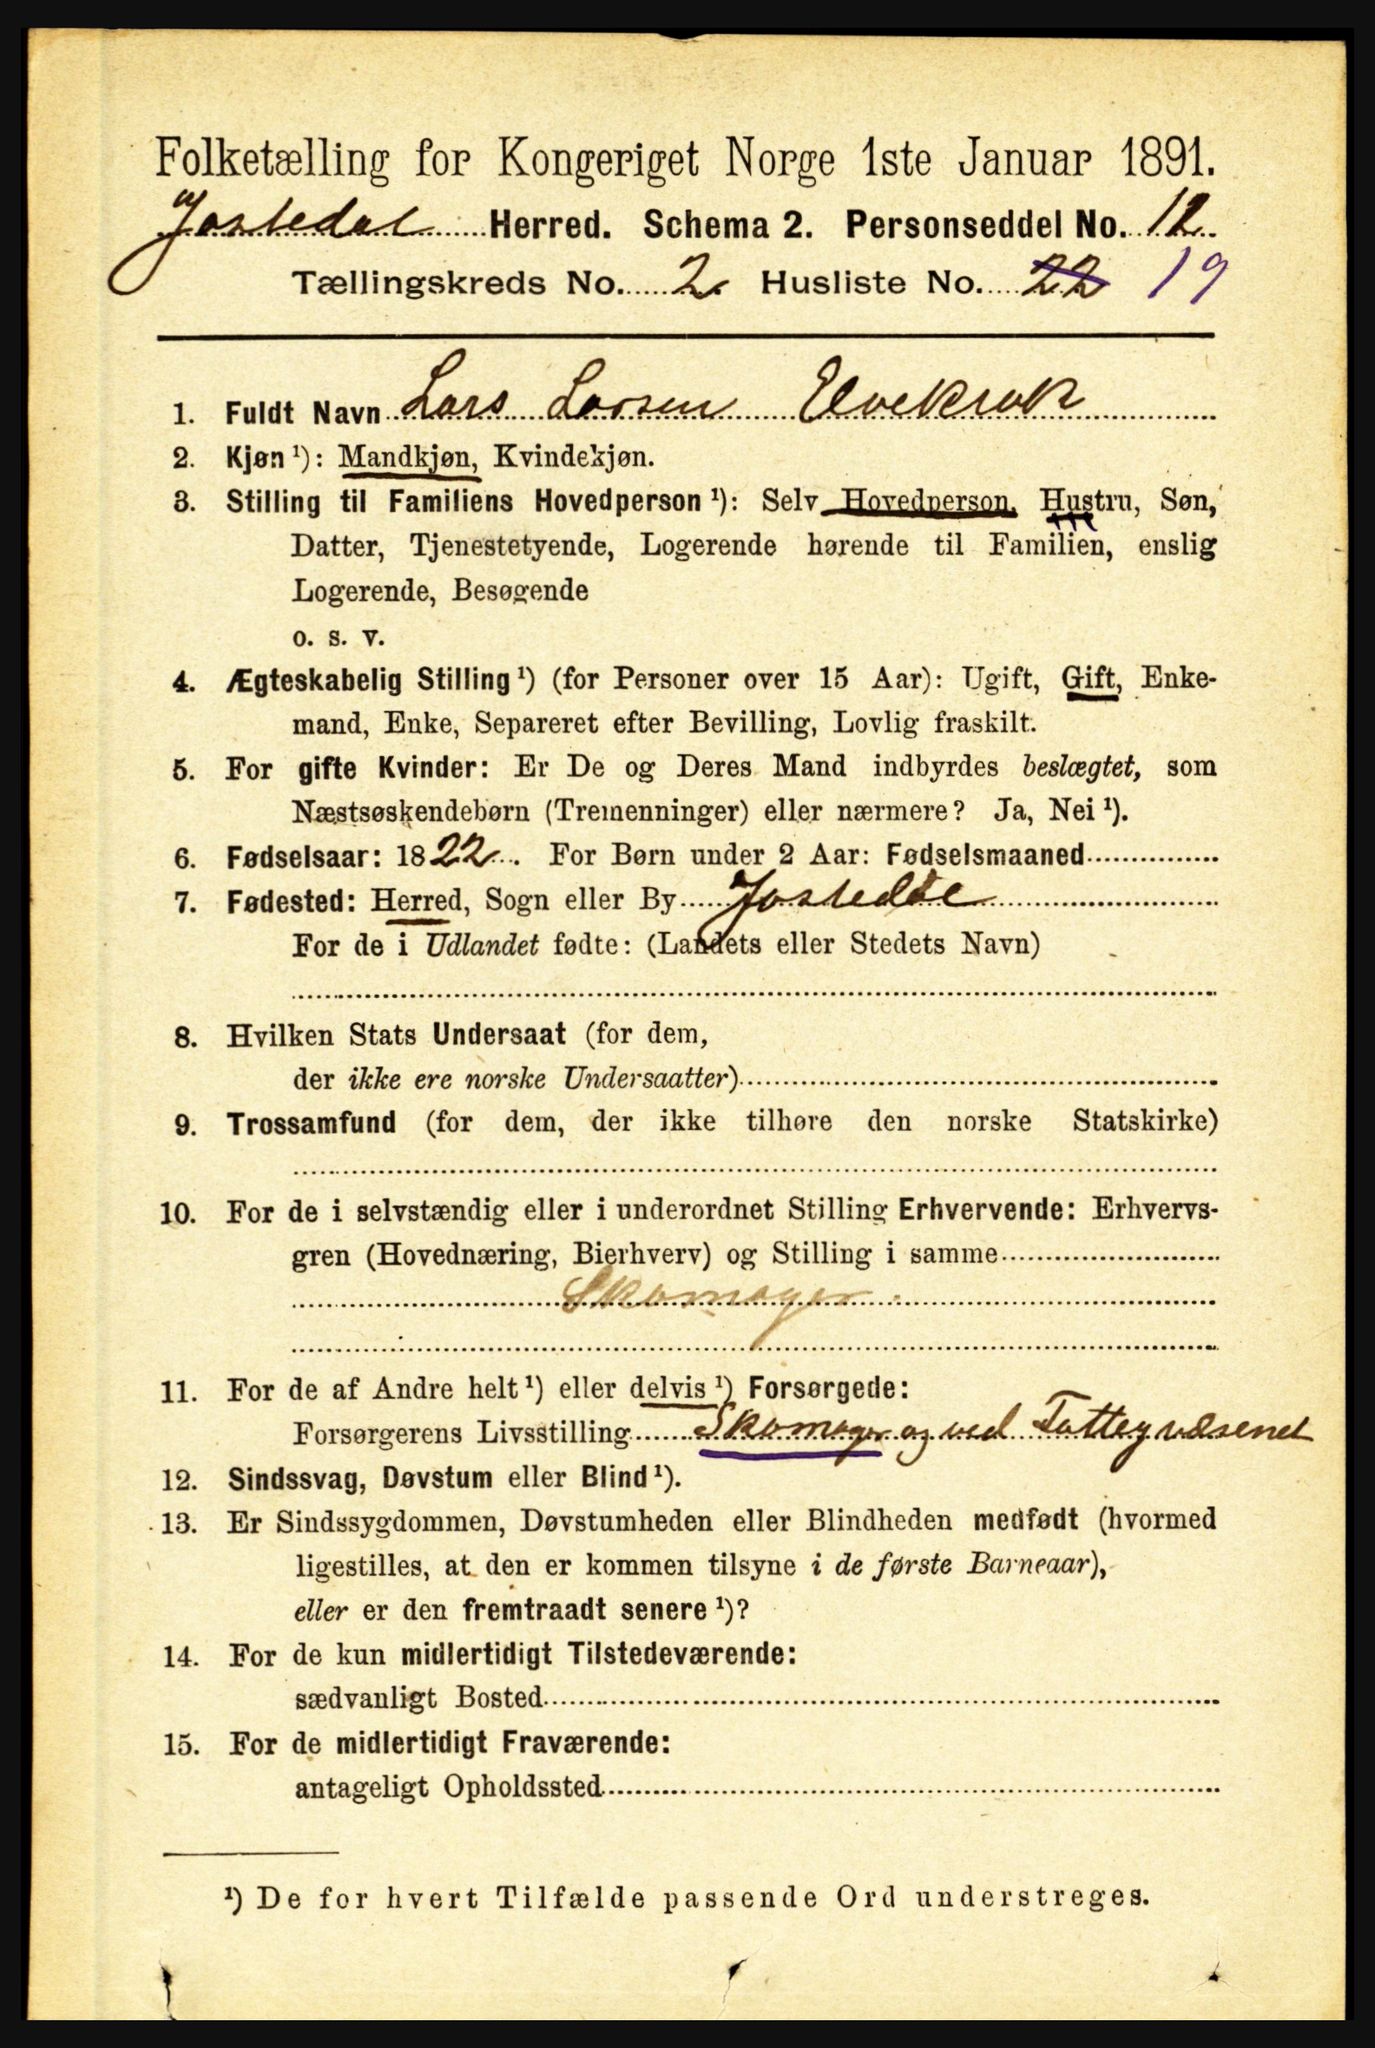 Folketælling for Kongeriget Norge 1ste Januar 1891.
Jostedal Herred. Schema 2. Personseddel No. 12
Tællingskreds No. 2. Husliste No. 22 19
1. Fuldt Navn Lars Larsen Elvekrok
2. Kjøn¹): Mandkjøn, Kvindekjøn.
3. Stilling til Familiens Hovedperson¹): Selv Hovedperson, Hustru, Søn,
Datter, Tjenestetyende, Logerende hørende til Familien, enslig
Logerende, Besøgende
o. s. v.
4. Ægteskabelig Stilling¹) (for Personer over 15 Aar): Ugift, Gift, Enke-
mand, Enke, Separeret efter Bevilling, Lovlig fraskilt.
5. For gifte Kvinder: Er De og Deres Mand indbyrdes beslægtet, som
Næstsøskendebørn (Tremenninger) eller nærmere? Ja, Nei¹).
6. Fødselsaar: 1822. For Børn under 2 Aar: Fødselsmaaned
7. Fødested: Herred, Sogn eller By
For de i Udlandet fødte: (Landets eller Stedets Navn)
8. Hvilken Stats Undersaat (for dem,
der ikke ere norske Undersaatter)
9. Trossamfund (for dem, der ikke tilhøre den norske Statskirke)
10. For de i selvstændig eller i underordnet Stilling Erhvervende: Erhvervs-
gren (Hovednæring, Bierhverv) og Stilling i samme
Skomager.
11. For de af Andre helt¹) eller delvis¹) Forsørgede:
Forsørgerens Livsstilling Skomager og ved Fattigvæsenet
12. Sindssvag, Døvstum eller Blind¹).
13. Er Sindssygdommen, Døvstumheden eller Blindheden medfødt (hvormed
ligestilles, at den er kommen tilsyne i de første Barneaar),
eller er den fremtraadt senere¹)?
14. For de kun midlertidigt Tilstedeværende:
sædvanligt Bosted
15. For de midlertidigt Fraværende:
antageligt Opholdssted
¹) De for hvert Tilfælde passende Ord understreges.